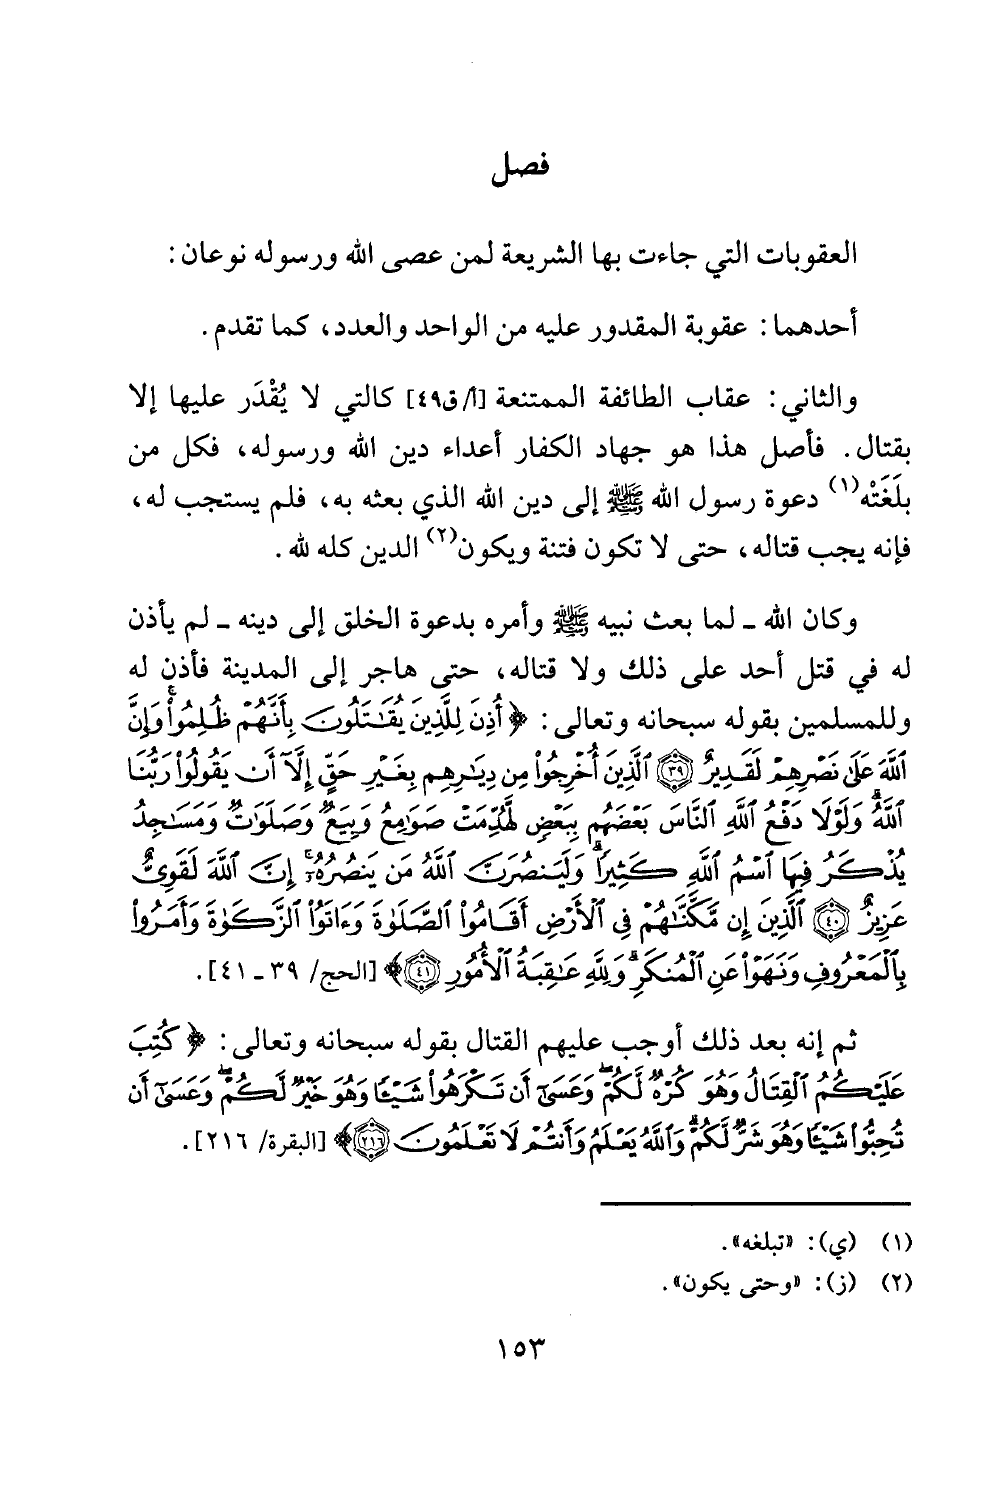 فصل
العقوبات التي جاءت بها الشريعة لمن عصى الله ورسوله نوعان:
أحدهما: عقوبة المقدور عليه من الواحد والعدد، كما تقدم.
والثاني: عقاب الطائفة الممتنعة [أ/ق٤٩] كالتي لا يُقْدَر عليها إلا
بقتال. فأصل هذا هو جهاد الكفار أعداء دين الله ورسوله، فكل من
بلَغَتْه(١) دعوة رسول الله ﷺ إلى دين الله الذي بعثه به، فلم يستجب له،
فإنه يجب قتاله، حتى لا تكون فتنة ويكون(٢) الدين كله لله.
وكان الله ـ لما بعث نبيه ﷺ وأمره بدعوة الخلق إلى دينه ـ لم يأذن
له في قتل أحد على ذلك ولا قتاله، حتى هاجر إلى المدينة فأذن له
وللمسلمين بقوله سبحانه وتعالى: ﴿أُذِنَ لِلَّذِينَ يُقَٰتَلُونَ بِأَنَّهُمْ ظُلِمُوا۟ ۚ وَإِنَّ
ٱللَّهَ عَلَىٰ نَصْرِهِمْ لَقَدِيرٌ ﴿٣٩﴾ ٱلَّذِينَ أُخْرِجُوا۟ مِن دِيَٰرِهِم بِغَيْرِ حَقٍّ إِلَّآ أَن يَقُولُوا۟ رَبُّنَا
ٱللَّهُ ۗ وَلَوْلَا دَفْعُ ٱللَّهِ ٱلنَّاسَ بَعْضَهُم بِبَعْضٍ لَّهُدِّمَتْ صَوَٰمِعُ وَبِيَعٌ وَصَلَوَٰتٌ وَمَسَٰجِدُ
يُذْكَرُ فِيهَا ٱسْمُ ٱللَّهِ كَثِيرًا ۗ وَلَيَنصُرَنَّ ٱللَّهُ مَن يَنصُرُهُۥٓ ۚ إِنَّ ٱللَّهَ لَقَوِىٌّ
عَزِيزٌ ﴿٤٠﴾ ٱلَّذِينَ إِن مَّكَّنَّٰهُمْ فِى ٱلْأَرْضِ أَقَامُوا۟ ٱلصَّلَوٰةَ وَءَاتَوُا۟ ٱلزَّكَوٰةَ وَأَمَرُوا۟
بِٱلْمَعْرُوفِ وَنَهَوْا۟ عَنِ ٱلْمُنكَرِ ۗ وَلِلَّهِ عَٰقِبَةُ ٱلْأُمُورِ ﴿٤١﴾﴾ [الحج/ ٣٩ ـ ٤١].
ثم إنه بعد ذلك أوجب عليهم القتال بقوله سبحانه وتعالى: ﴿كُتِبَ
عَلَيْكُمُ ٱلْقِتَالُ وَهُوَ كُرْهٌ لَّكُمْ ۖ وَعَسَىٰٓ أَن تَكْرَهُوا۟ شَيْـًٔا وَهُوَ خَيْرٌ لَّكُمْ ۖ وَعَسَىٰٓ أَن
تُحِبُّوا۟ شَيْـًٔا وَهُوَ شَرٌّ لَّكُمْ ۗ وَٱللَّهُ يَعْلَمُ وَأَنتُمْ لَا تَعْلَمُونَ ﴿٢١٦﴾﴾ [البقرة/ ٢١٦].
(١) (ي): «تبلغه».
(٢) (ز): «وحتى يكون».
١٥٣